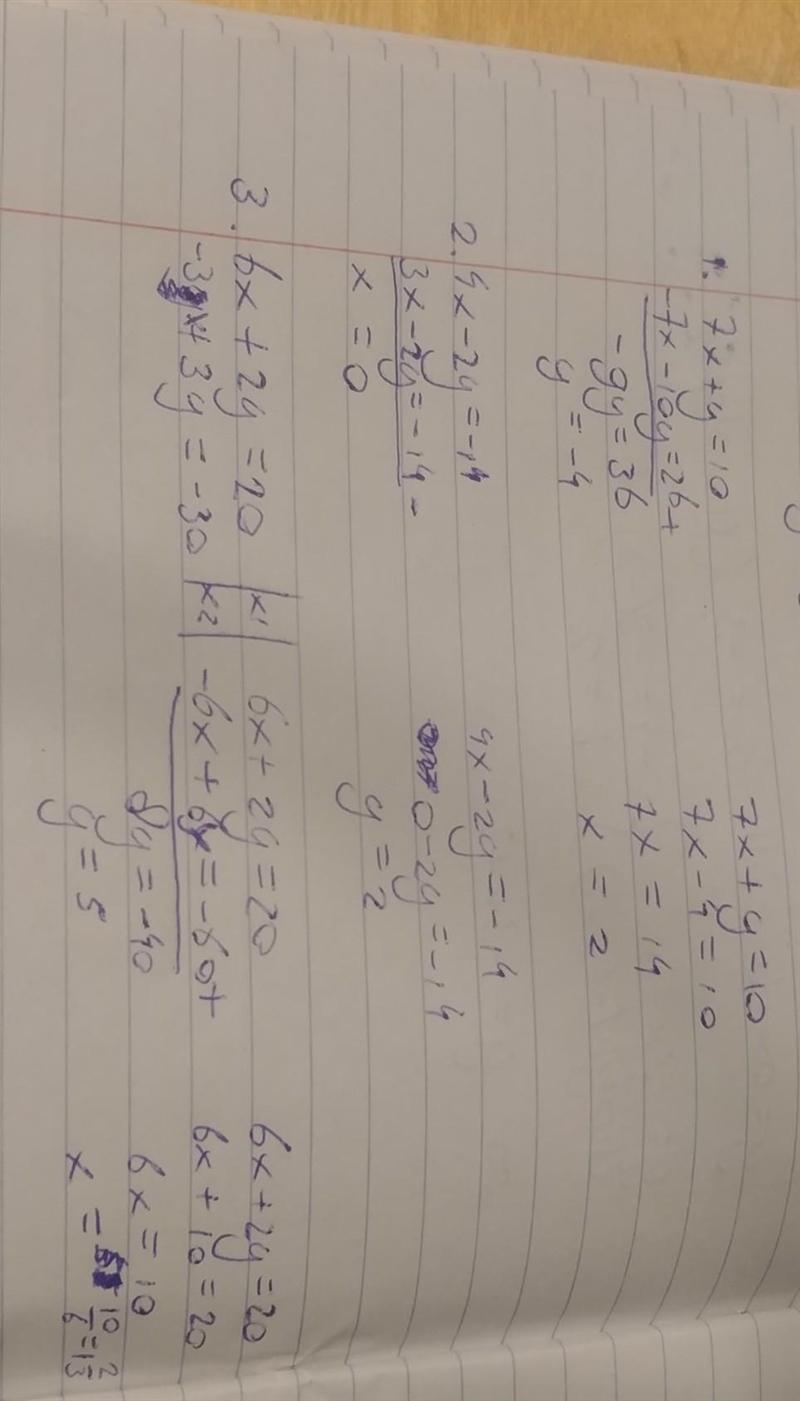 1. 7x + y = 10
-7x - 10y = 26 +
-9y = 36
y = -4
7x + y = 10
7x - 4 = 10
7x = 14
x = 2
2. 4x - 2y = -14
3x - 2y = -14 -
x = 0
4x - 2y = -14
0 - 2y = -14
y = 2
3. 6x + 2y = 20 | x1 |
-3x + 3y = -30 | x2 |
6x + 2y = 20
-6x + 6y = -60 +
8y = -40
y = 5
6x + 2y = 20
6x + 10 = 20
6x = 10
x = 10/6 = 1 2/3